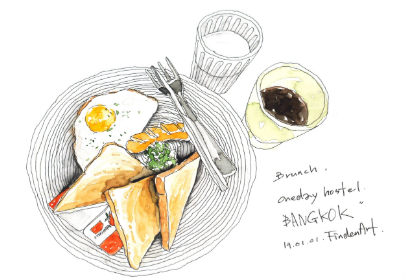 Brunch.
oneday hostel.
BANGKOK
19.01.01. FindenArt.